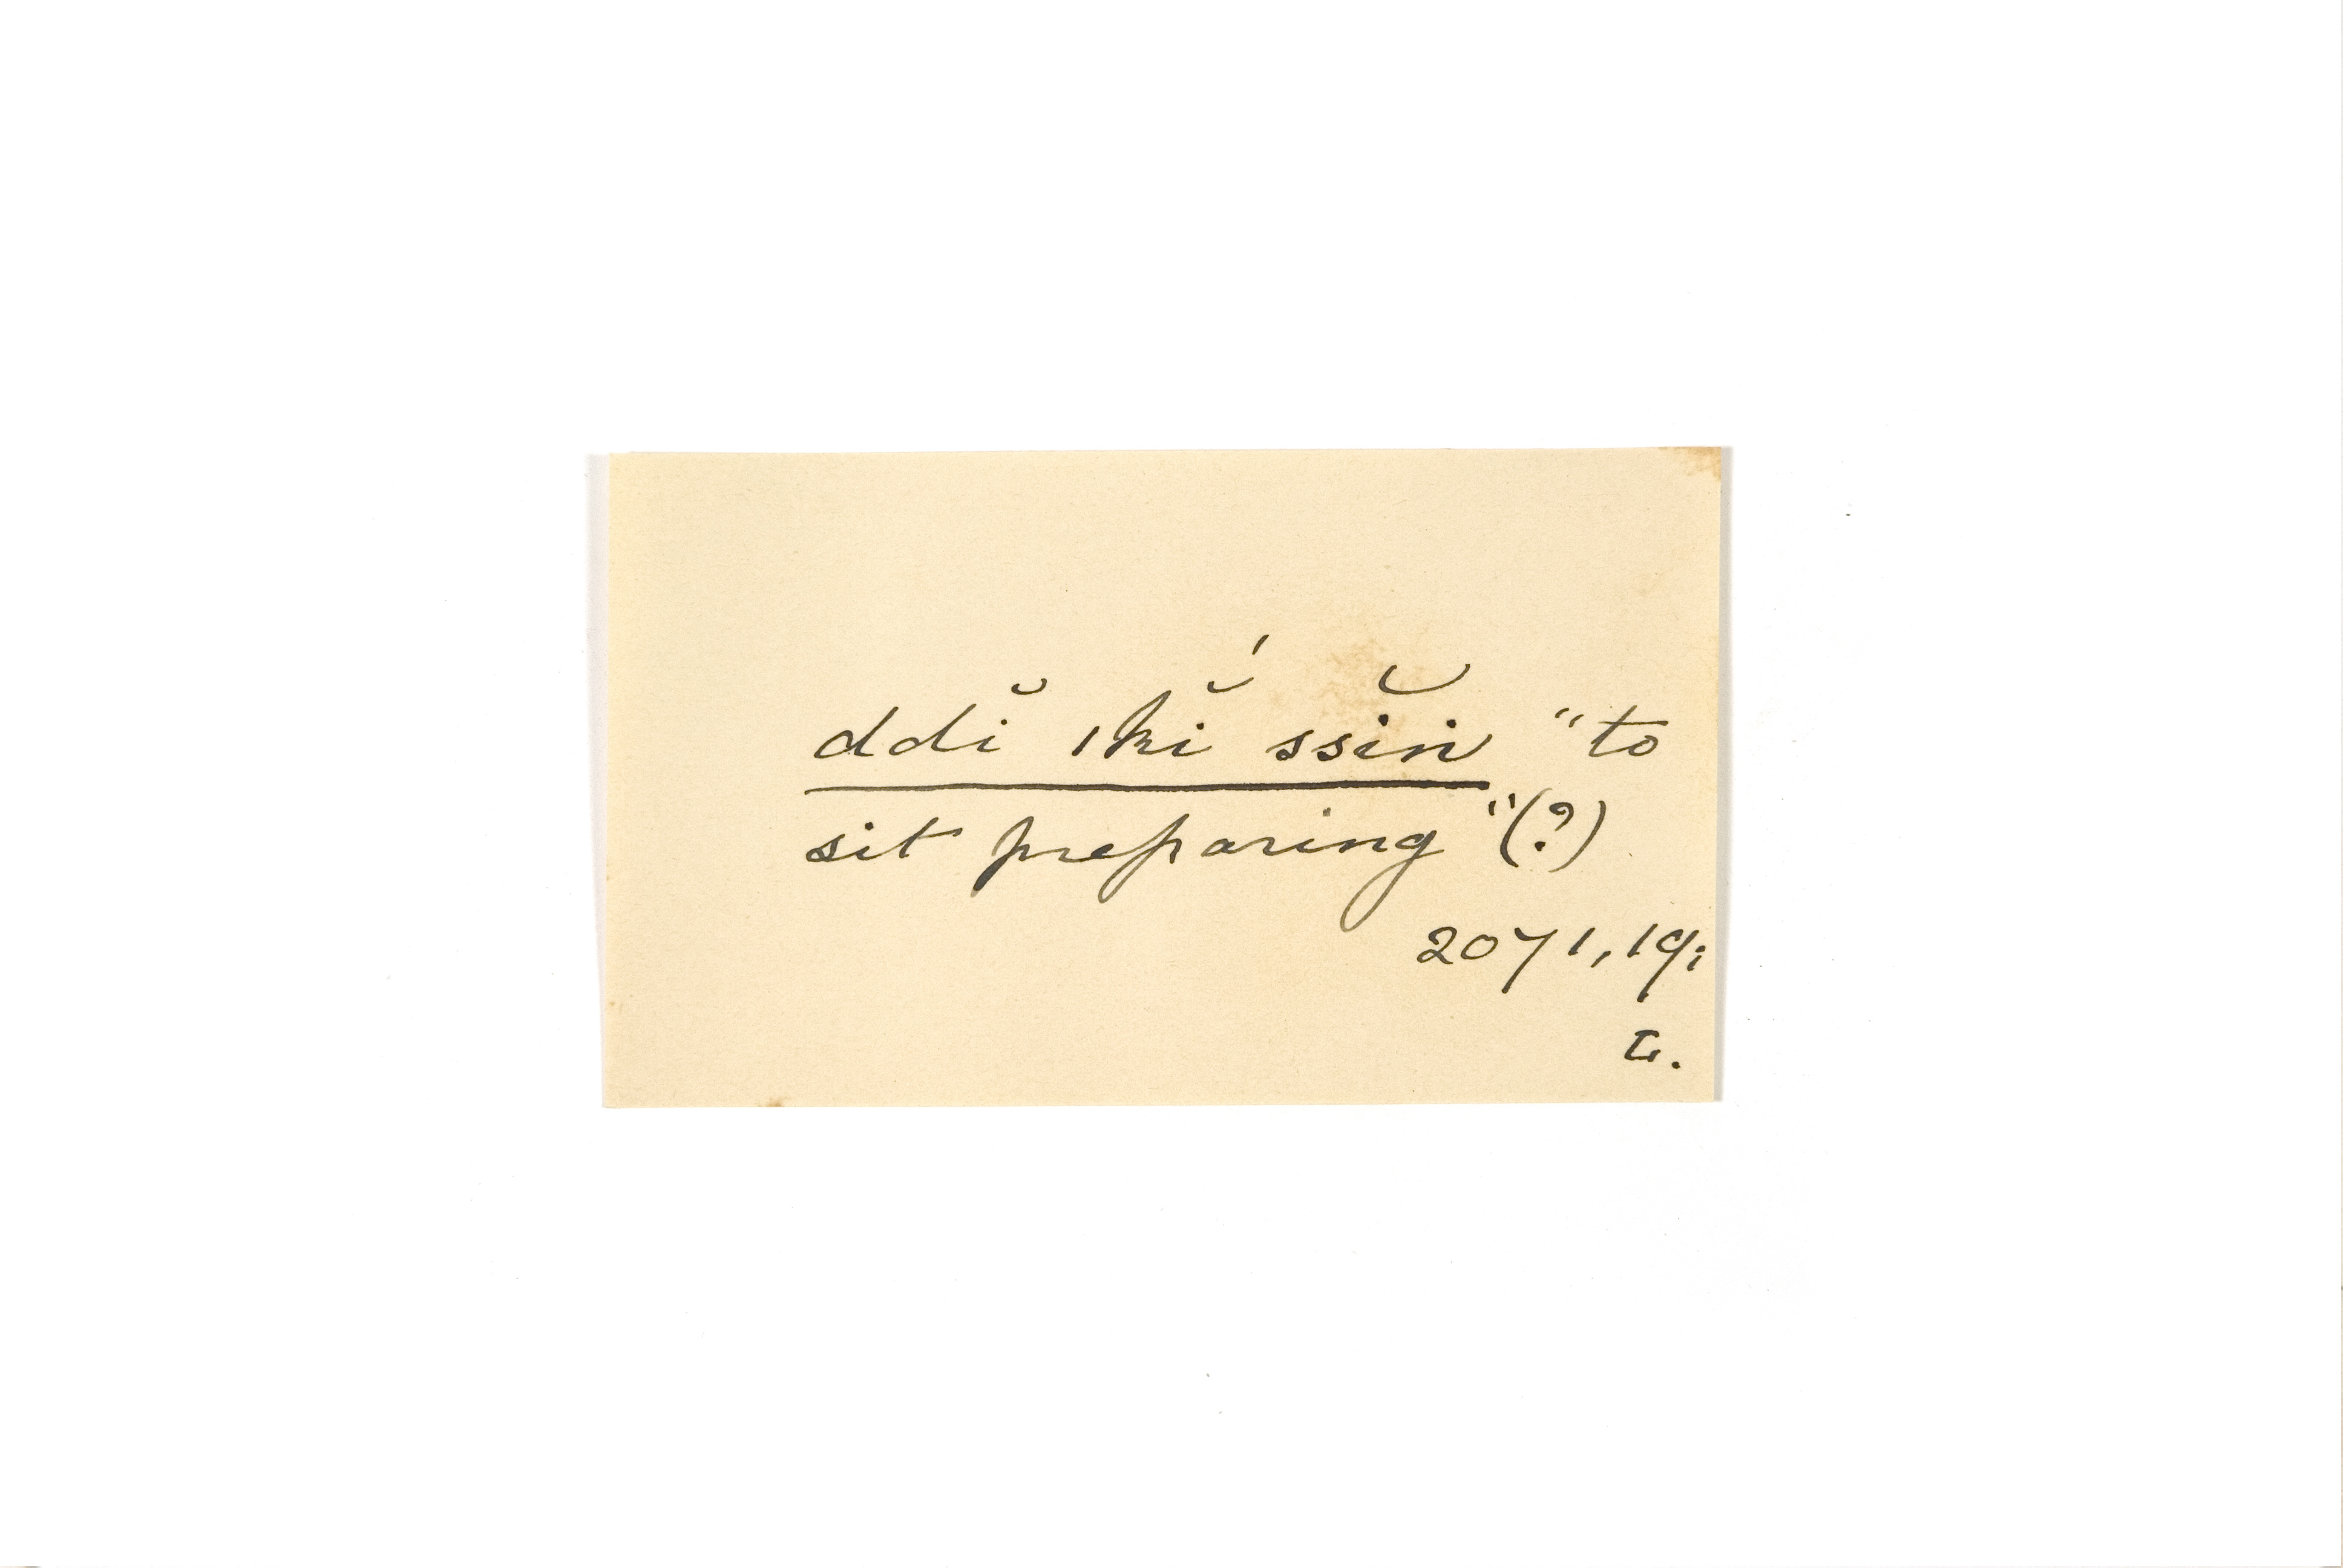 ddĭ ıkĭ́ ssĭn "to
sit preparing" (?)
2071, 19;
L.